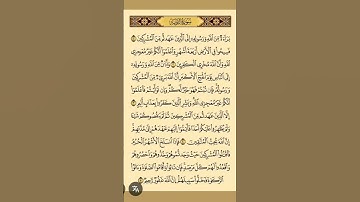 سُورَةُ التَّوْبَةِ
بَرَآءَةٌ مِّنَ ٱللَّهِ وَرَسُولِهِۦٓ إِلَى ٱلَّذِينَ عَٰهَدتُّم مِّنَ ٱلْمُشْرِكِينَ ١
فَسِيحُوا۟ فِى ٱلْأَرْضِ أَرْبَعَةَ أَشْهُرٍ وَٱعْلَمُوٓا۟ أَنَّكُمْ غَيْرُ مُعْجِزِى
ٱللَّهِ وَأَنَّ ٱللَّهَ مُخْزِى ٱلْكَٰفِرِينَ ٢ وَأَذَٰنٌ مِّنَ ٱللَّهِ وَرَسُولِهِۦٓ
إِلَى ٱلنَّاسِ يَوْمَ ٱلْحَجِّ ٱلْأَكْبَرِ أَنَّ ٱللَّهَ بَرِىٓءٌ مِّنَ ٱلْمُشْرِكِينَ
وَرَسُولُهُۥ فَإِن تُبْتُمْ فَهُوَ خَيْرٌ لَّكُمْ وَإِن تَوَلَّيْتُمْ فَٱعْلَمُوٓا۟
أَنَّكُمْ غَيْرُ مُعْجِزِى ٱللَّهِ وَبَشِّرِ ٱلَّذِينَ كَفَرُوا۟ بِعَذَابٍ أَلِيمٍ ٣
إِلَّا ٱلَّذِينَ عَٰهَدتُّم مِّنَ ٱلْمُشْرِكِينَ ثُمَّ لَمْ يَنقُصُوكُمْ شَيْـًٔا
وَلَمْ يُظَٰهِرُوا۟ عَلَيْكُمْ أَحَدًا فَأَتِمُّوٓا۟ إِلَيْهِمْ عَهْدَهُمْ إِلَىٰ مُدَّتِهِمْ
إِنَّ ٱللَّهَ يُحِبُّ ٱلْمُتَّقِينَ ٤ فَإِذَا ٱنسَلَخَ ٱلْأَشْهُرُ ٱلْحُرُمُ
فَٱقْتُلُوا۟ ٱلْمُشْرِكِينَ حَيْثُ وَجَدتُّمُوهُمْ وَخُذُوهُمْ وَٱحْصُرُوهُمْ
وَٱقْعُدُوا۟ لَهُمْ كُلَّ مَرْصَدٍ فَإِن تَابُوا۟ وَأَقَامُوا۟ ٱلصَّلَوٰةَ وَءَاتَوُا۟
ٱلزَّكَوٰةَ فَخَلُّوا۟ سَبِيلَهُمْ إِنَّ ٱللَّهَ غَفُورٌ رَّحِيمٌ ٥